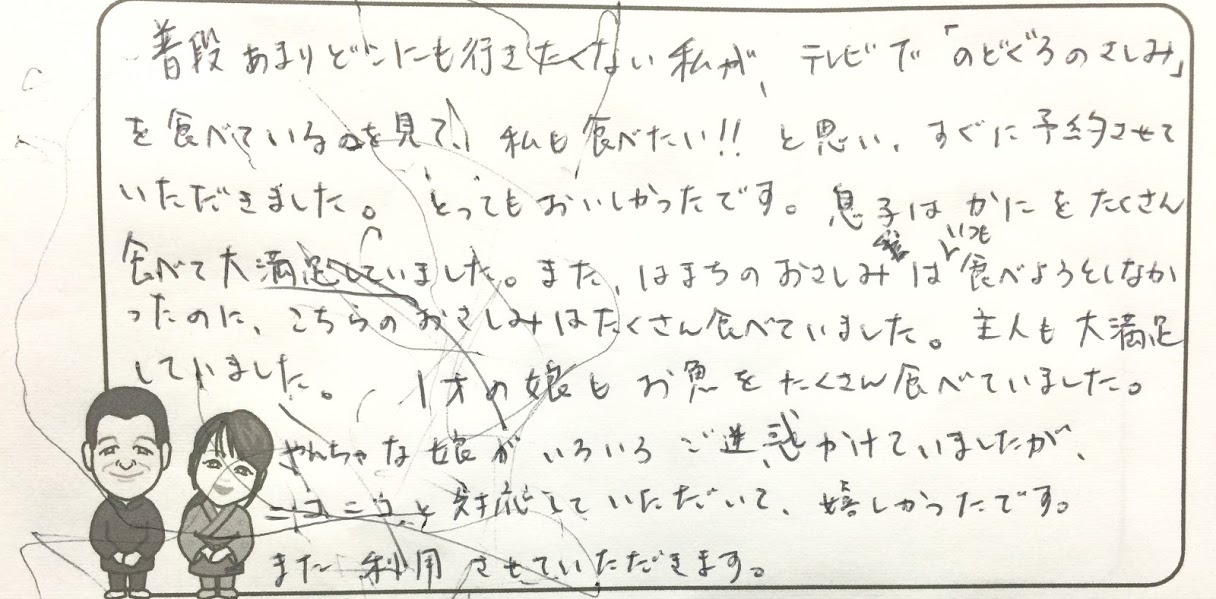 普段あまりどこにも行きたくない私が、テレビで「のどぐろのさしみ」
を食べているのを見て、私も食べたい!!と思い、すぐに予約させて
いただきました。とってもおいしかったです。息子はかにをたくさん
食べて大満足していました。また、はまちのおさしみはいつも食べようとしなか
ったのに、こちらのおさしみはたくさん食べていました。主人も大満足
していました。1才の娘もお魚をたくさん食べていました。
やんちゃな娘がいろいろご迷惑かけていましたが、
ニコニコと対応していただいて、嬉しかったです。
また利用させていただきます。